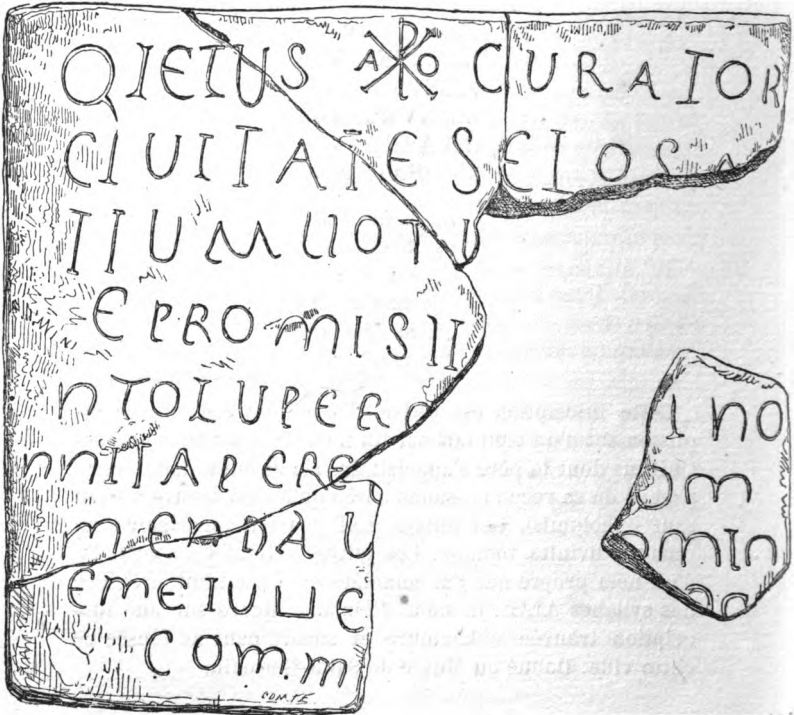 QIETUS A☧O CURATOR
CIUITATES ETOS A
IIUM UOTU
E PROMISII
NTOLUPERA
NNITAPERE
MENDAU
EMETULIE
COM.M
COMTE
INO
OM
OMIN